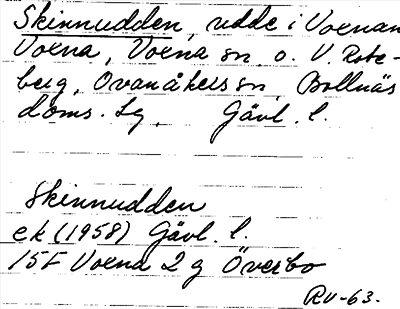 Skinnudden, udde i Voxnan
Voxna, Voxna sn o. V. Rote-
berg, Ovanåkers sn, Bollnäs
doms. lg, Gävl. l.
Skinnudden
ek (1958) Gävl. l.
15F Voxna 2g Överbo
RV-63.